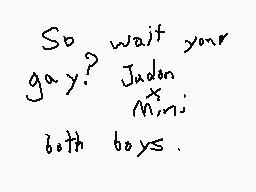 So wait your
gay? Judon
x
Mini
both boys.